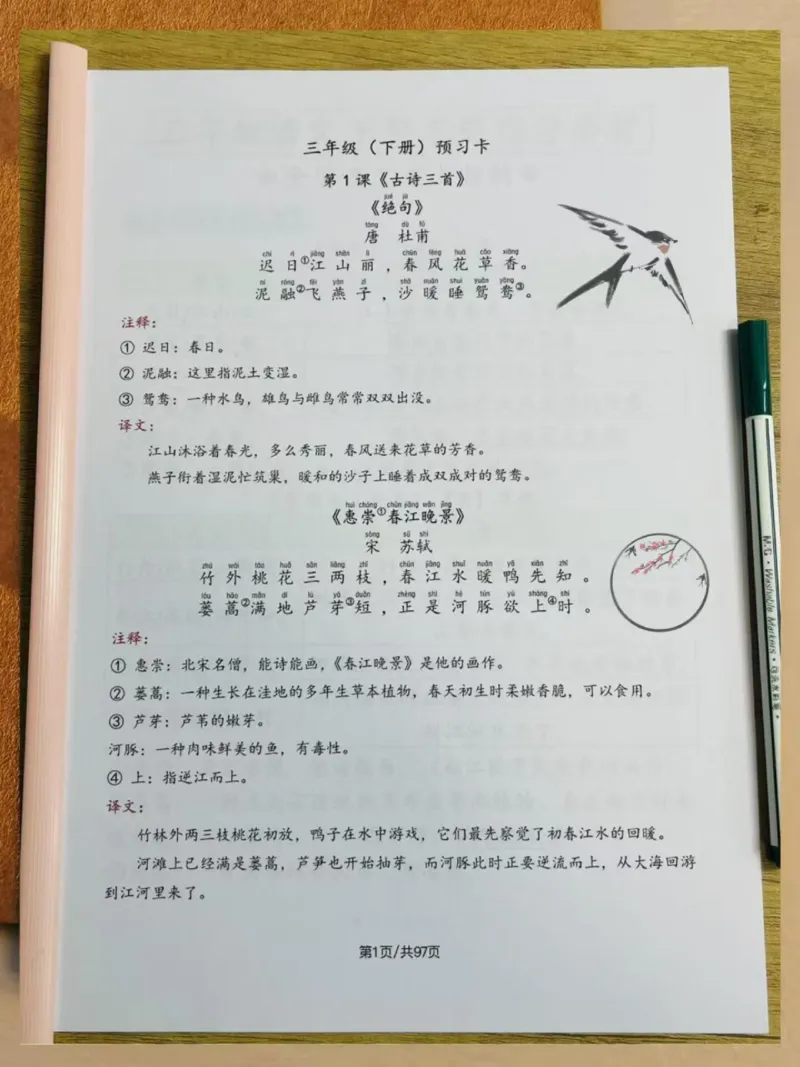 三年级（下册）预习卡
第1课《古诗三首》
jué jù
《绝句》
táng dù fǔ
唐 杜甫
chí rì jiāng shān lì chūn fēng huā cǎo xiāng
迟日①江山丽，春风花草香。
ní róng fēi yàn zǐ shā nuǎn shuì yuān yāng
泥融②飞燕子，沙暖睡鸳鸯③。
注释：
① 迟日：春日。
② 泥融：这里指泥土变湿。
③ 鸳鸯：一种水鸟，雄鸟与雌鸟常常双双出没。
译文：
江山沐浴着春光，多么秀丽，春风送来花草的芳香。
燕子衔着湿泥忙筑巢，暖和的沙子上睡着成双成对的鸳鸯。
huì chóng chūn jiāng wǎn jǐng
《惠崇①春江晚景》
sòng sū shì
宋 苏轼
zhú wài táo huā sān liǎng zhī chūn jiāng shuǐ nuǎn yā xiān zhī
竹外桃花三两枝，春江水暖鸭先知。
lóu hāo mǎn dì lú yá duǎn zhèng shì hé tún yù shàng shí
蒌蒿②满地芦芽③短，正是河豚欲上④时。
注释：
① 惠崇：北宋名僧，能诗能画，《春江晚景》是他的画作。
② 蒌蒿：一种生长在洼地的多年生草本植物，春天初生时柔嫩香脆，可以食用。
③ 芦芽：芦苇的嫩芽。
河豚：一种肉味鲜美的鱼，有毒性。
④ 上：指逆江而上。
译文：
竹林外两三枝桃花初放，鸭子在水中游戏，它们最先察觉了初春江水的回暖。
河滩上已经满是蒌蒿，芦笋也开始抽芽，而河豚此时正要逆流而上，从大海回游
到江河里来了。
第1页/共97页
M&G • Washable Markers •